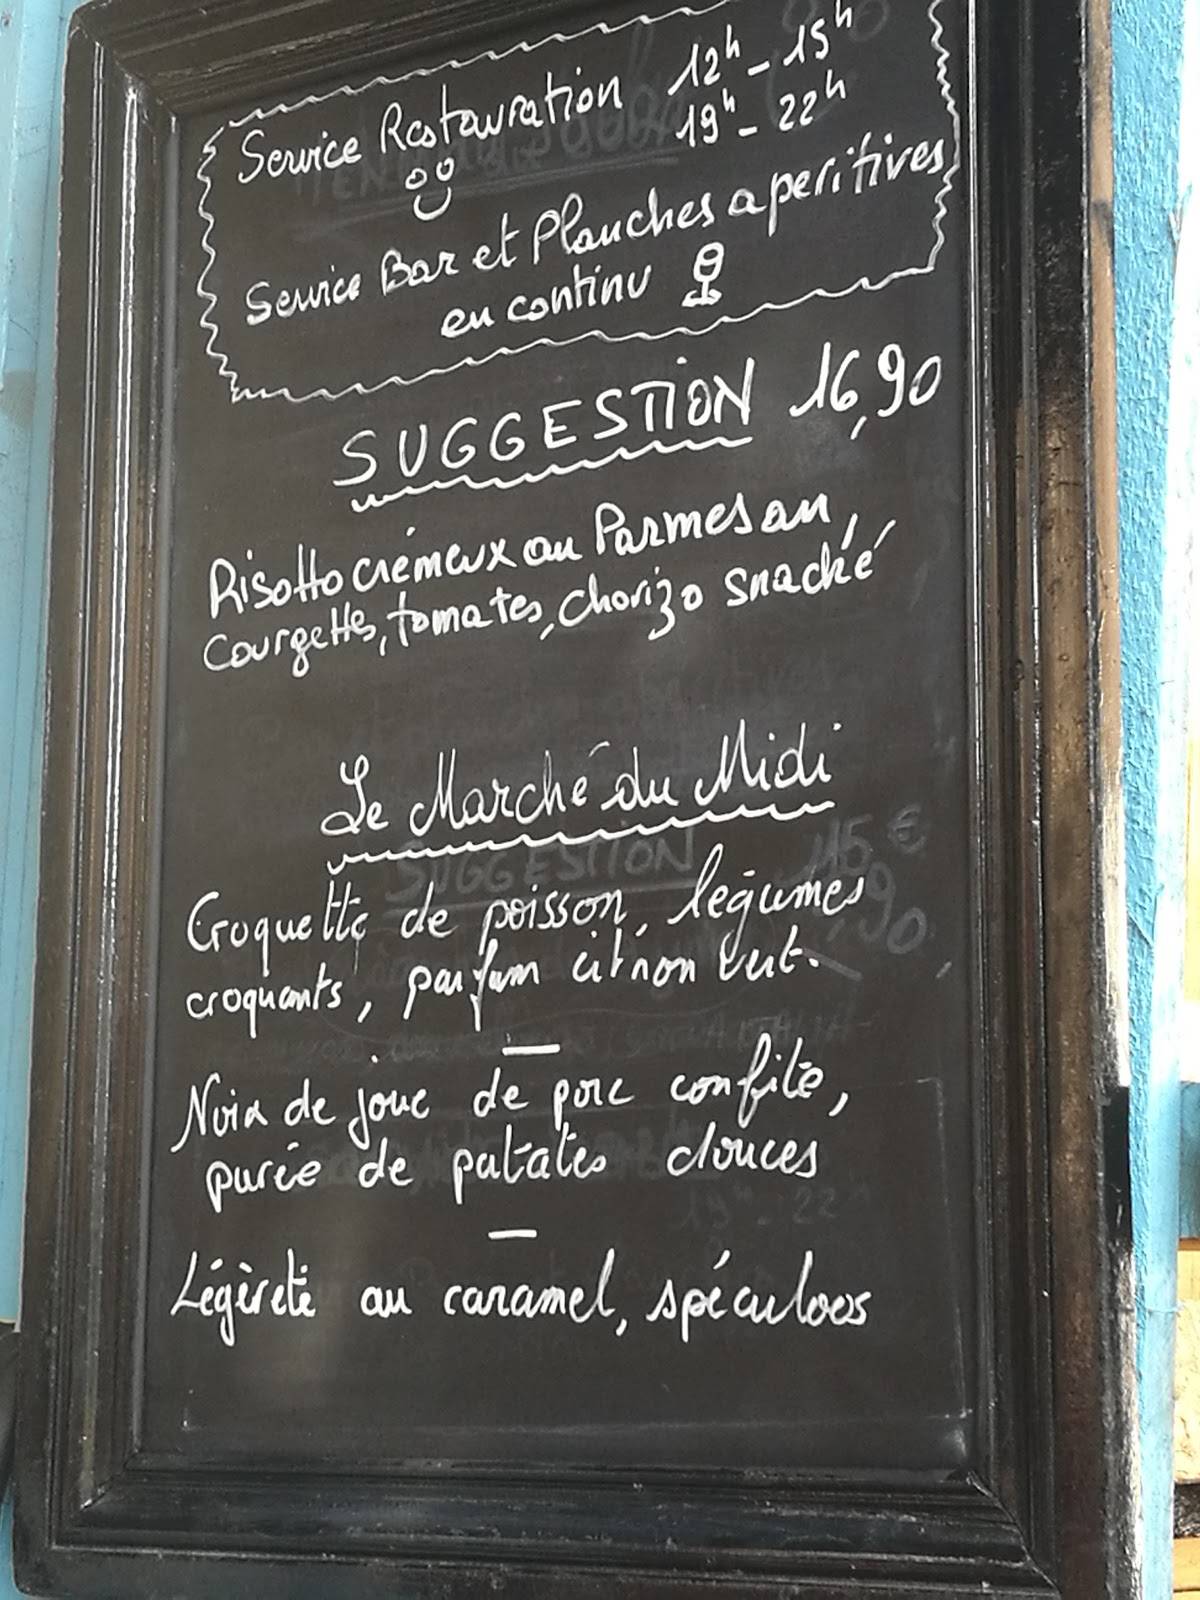 Service Restauration 12h - 15h
19h - 22h
Service Bar et Planches aperitives
en continu
SUGGESTION 16,90
Risotto crémeux au Parmesan,
Courgettes, tomates, chorizo snacké
Le Marché du Midi
Croquette de poisson, légumes
croquants, parfum citron vert.
—
Noix de joue de porc confite,
purée de patates douces
—
Légèreté au caramel, spéculoos
SUGGESTION
16 €
19h - 22h